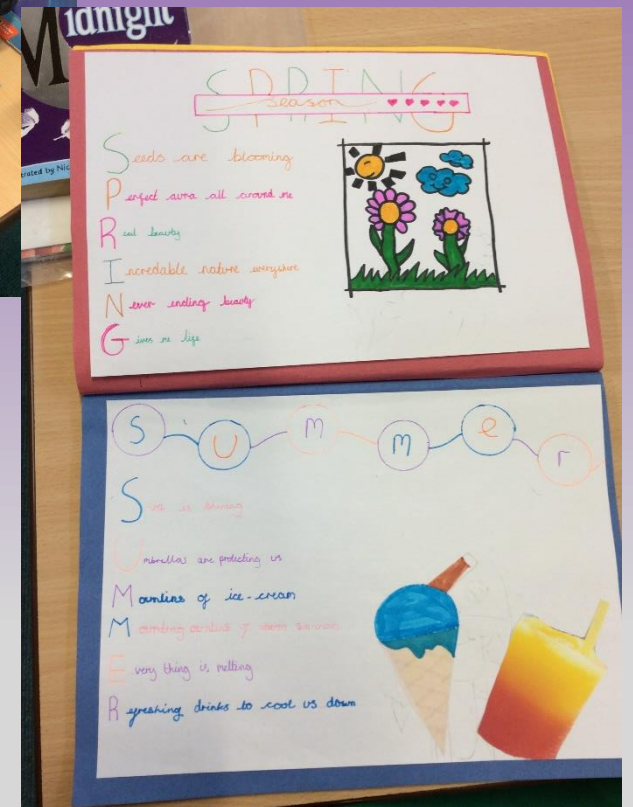 Midnight
trated by Nic
SPRING
Season
Seeds are blooming
Perfect aura all around me
Real beauty
Incredable nature everywhere
Never ending beauty
Gives me life
SUMMer
Sun is shining
Umbrellas are protecting us
Mountins of ice-cream
M
Every thing is melting
Refreshing drinks to cool us down